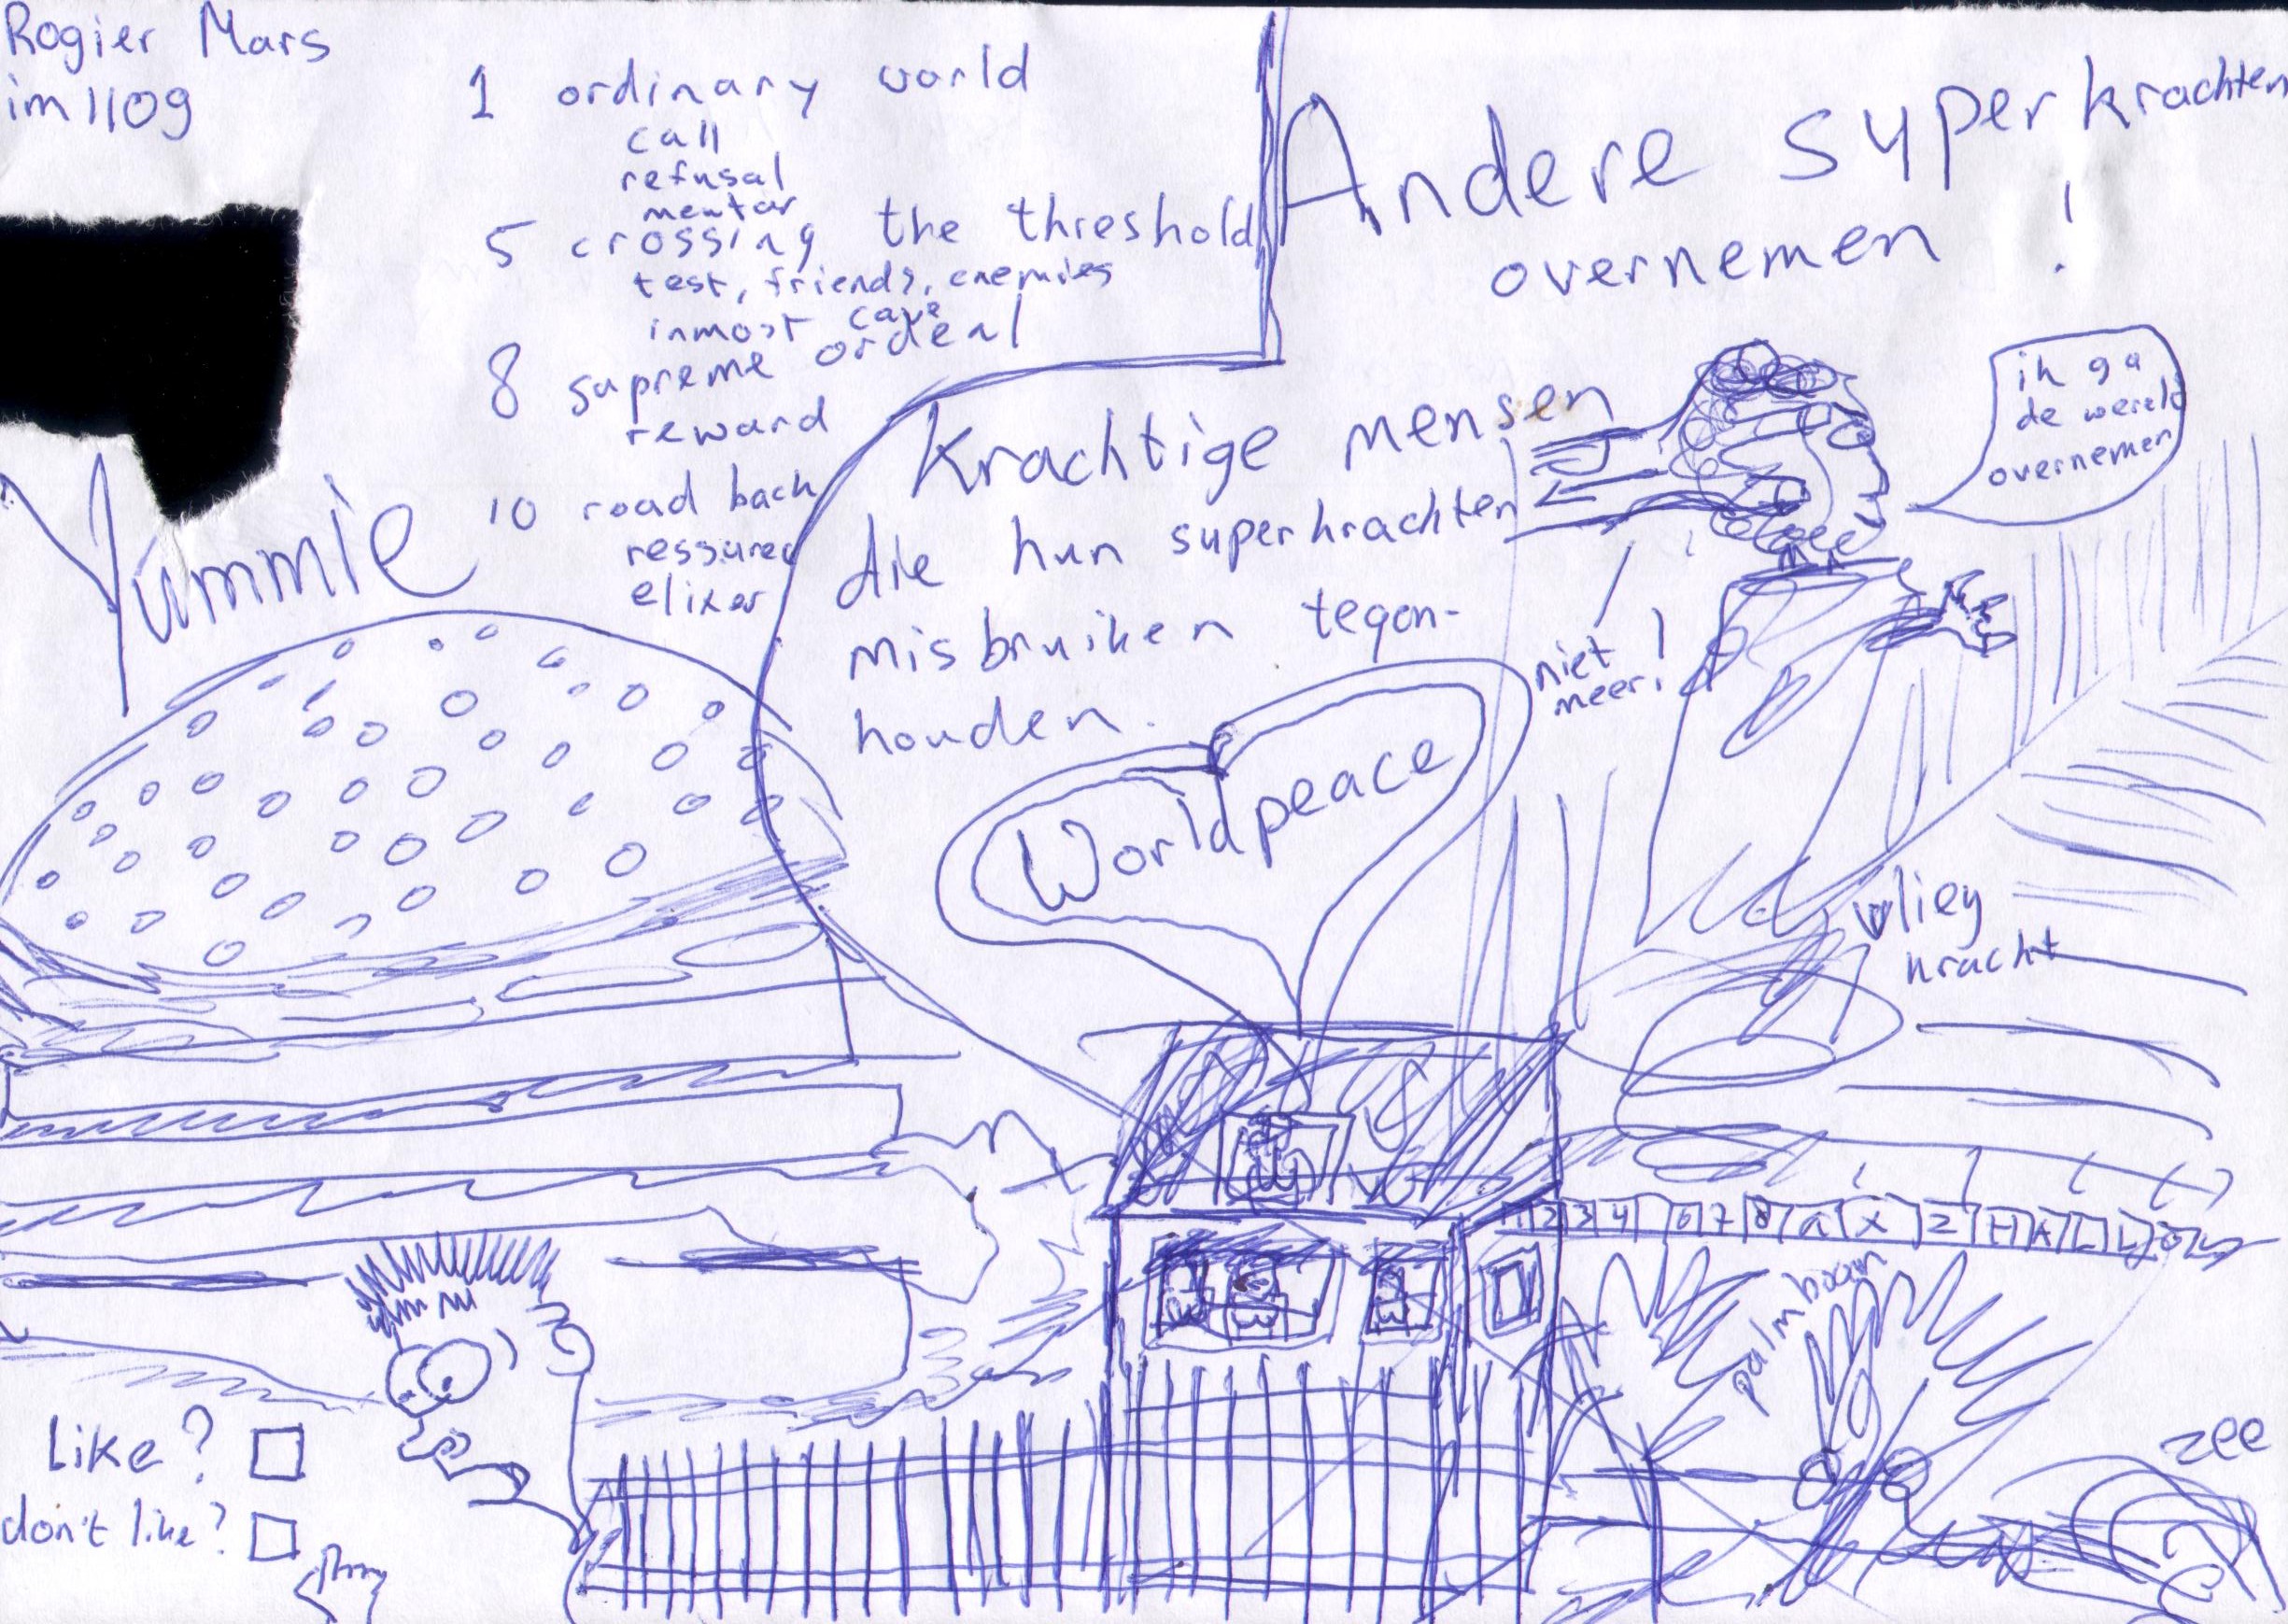 Rogier Mars
im1109
1 ordinary world
call
refusal
mentor
5 crossing the threshold
test, friends, enemies
inmost cave
8 supreme ordeal
reward
10 road back
ressurec
elixer
Andere superkrachten
overnemen!
ik ga
de wereld
overnemen
Krachtige mensen
die hun superkrachten
misbruiken tegen-
houden.
niet
meer!
Yummie
Worldpeace
vlieg
kracht
palmboom
zee
Like?
don't like?